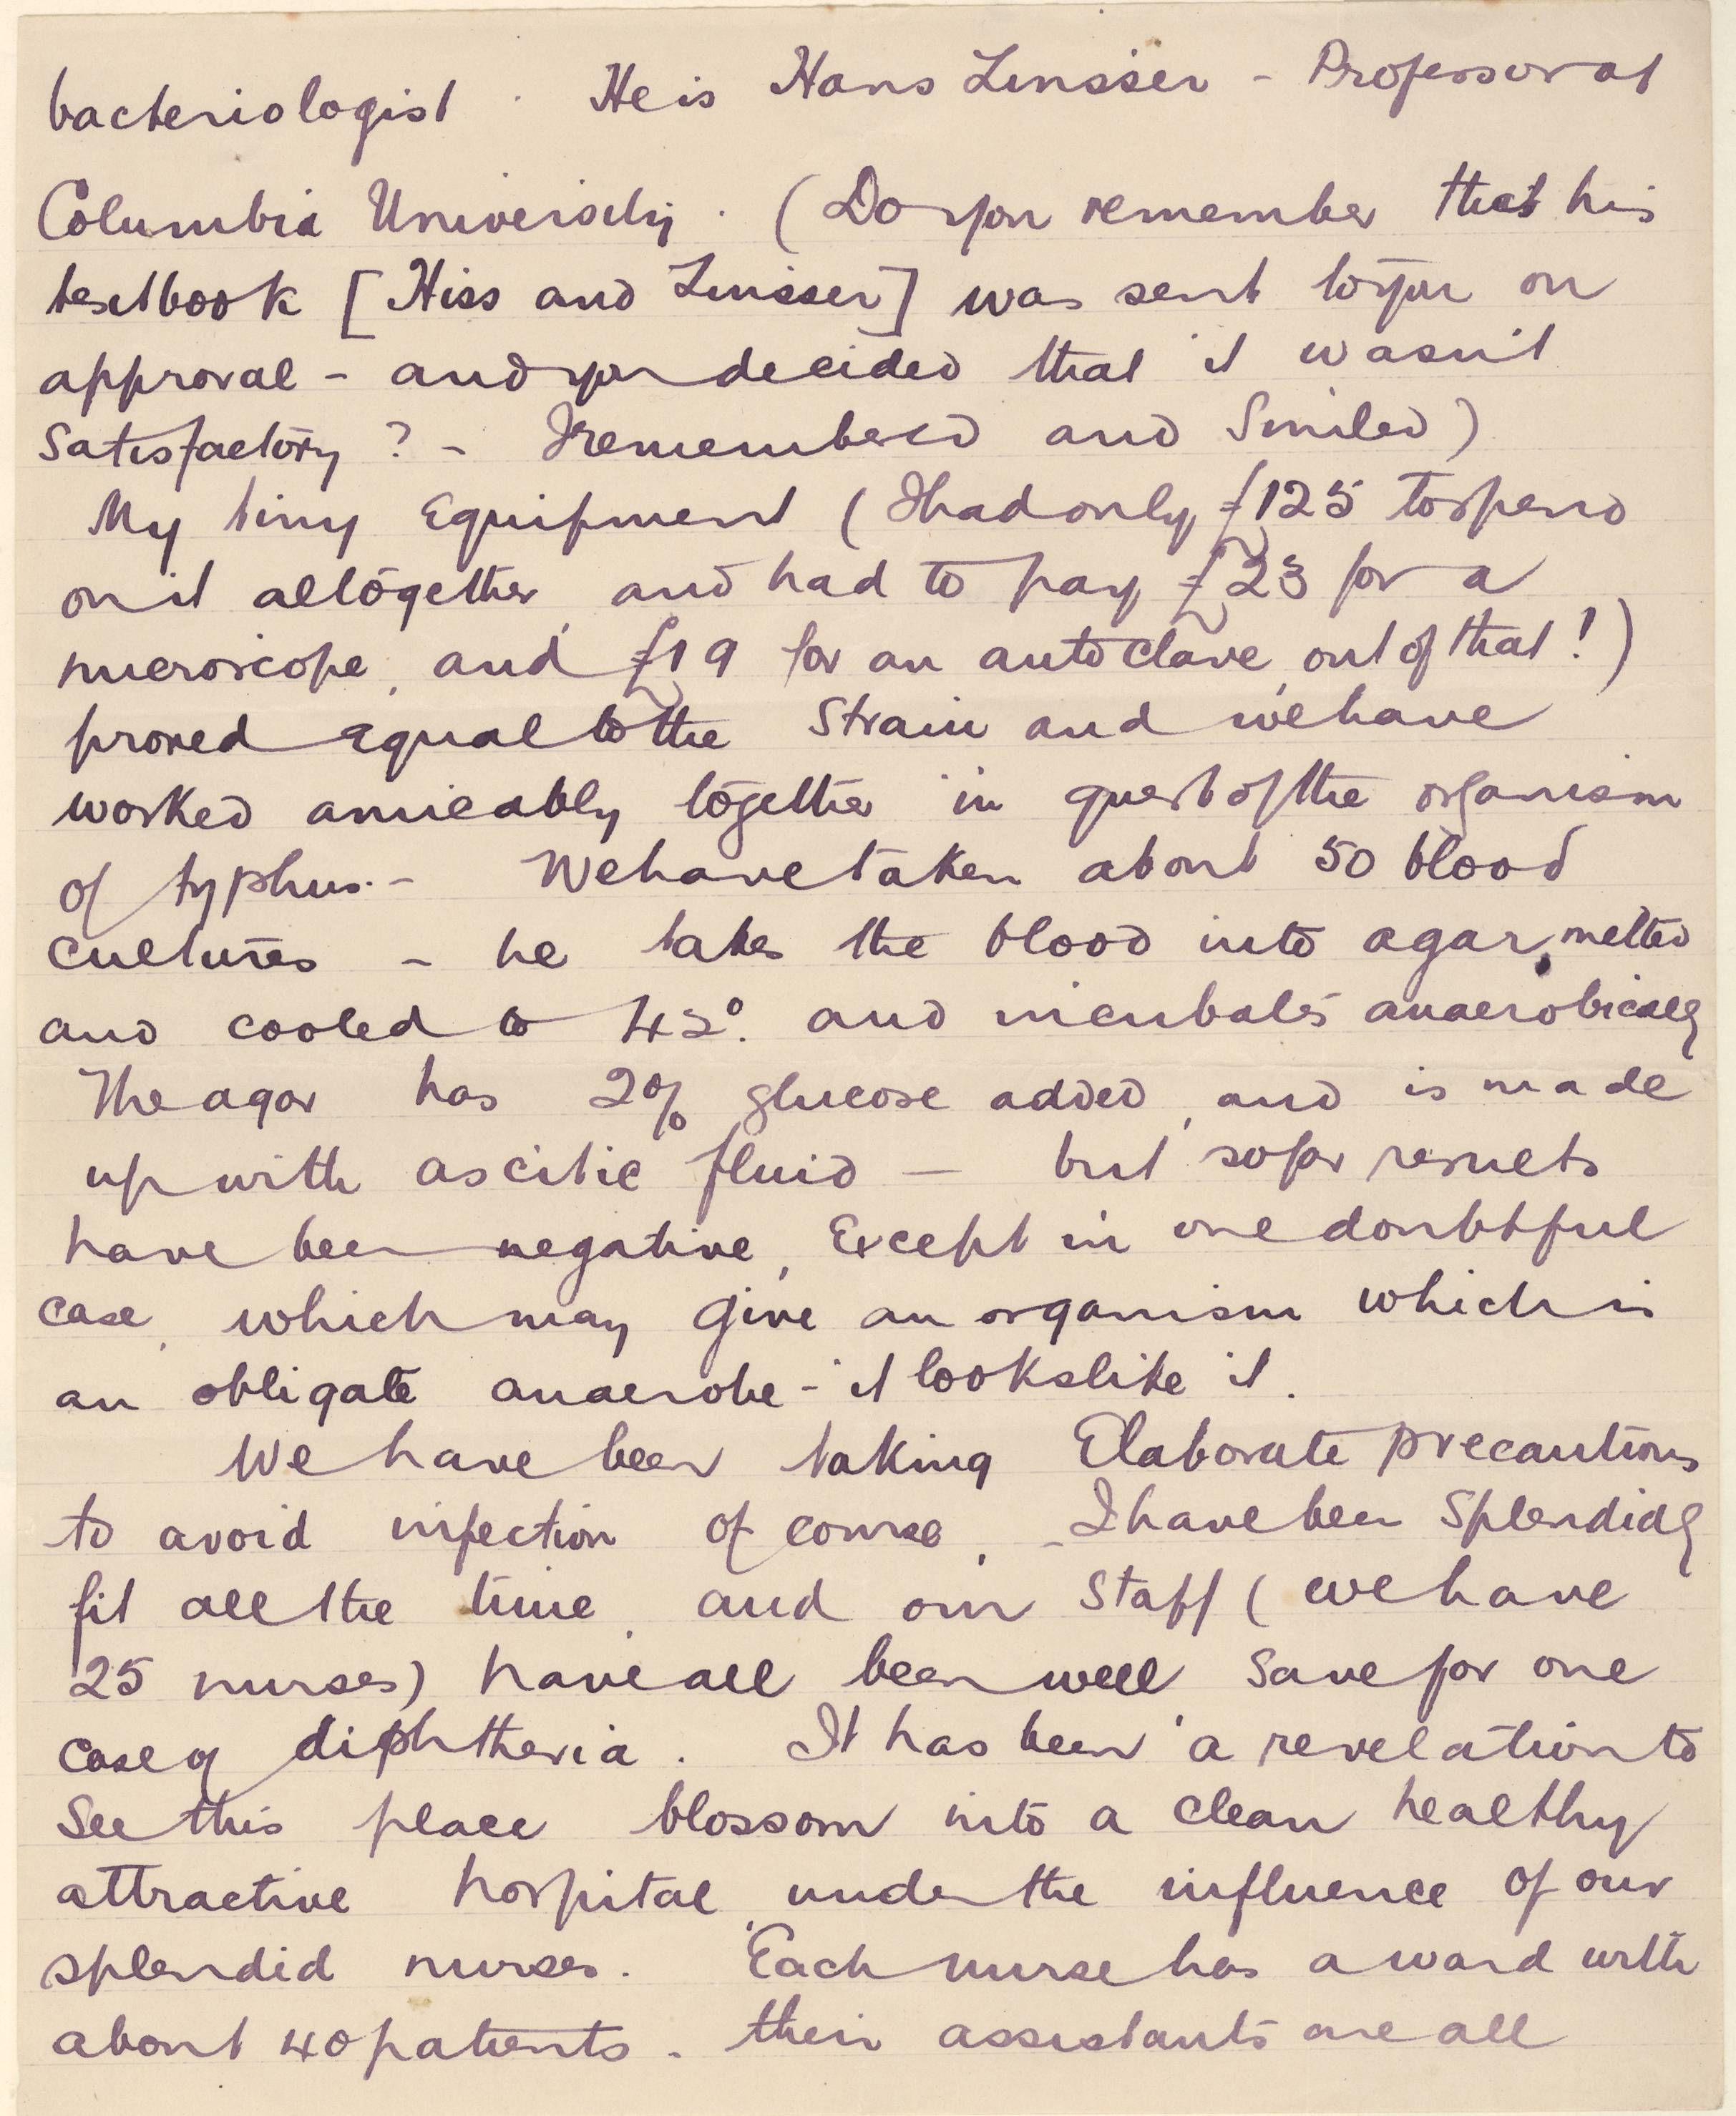 bacteriologist. He is Hans Zinsser - Professor at
Columbia University. (Do you remember that his
textbook [Hiss and Zinsser] was sent to you on
approval - and you decided that it wasn't
satisfactory? - I remembered and smiled)
My tiny equipment (I had only £125 to spend
on it altogether, and had to pay £23 for a
microscope, and £19 for an autoclave, out of that!)
proved equal to the strain and we have
worked amicably together in quest of the organism
of typhus. - We have taken about 50 blood
cultures - he takes the blood into agar, melted
and cooled to 42°. and incubates anaerobically
The agar has 2% glucose added, and is made
up with ascitic fluid — but so far results
have been negative, except in one doubtful
case, which may give an organism which is
an obligate anaerobe - it looks like it.
We have been taking elaborate precautions
to avoid infection of course. - I have been splendidly
fit all the time, and our staff (we have
25 nurses) have all been well save for one
case of diphtheria. It has been a revelation to
see this place blossom into a clean healthy
attractive hospital, under the influence of our
splendid nurses. Each nurse has a ward with
about 40 patients. their assistants are all